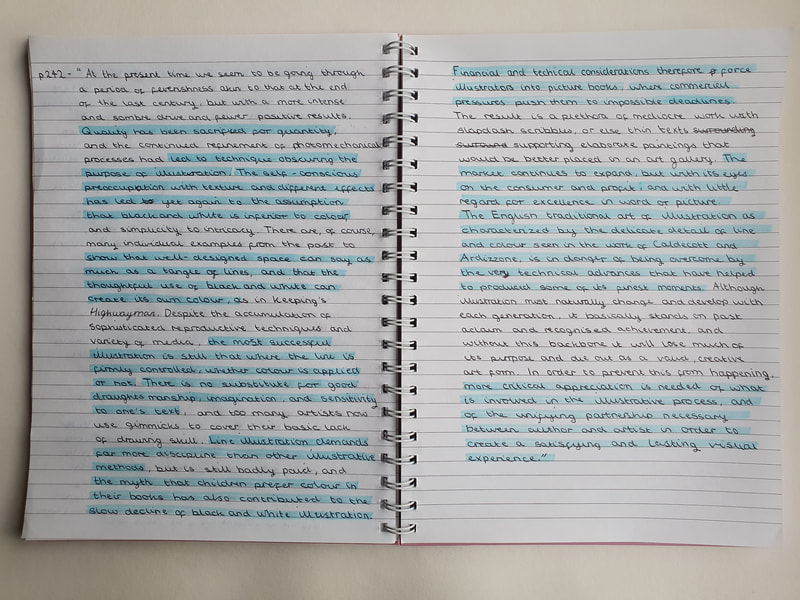 p.242 - "At the present time we seem to be going through
a period of feverishness akin to that at the end
of the last century, but with a more intense
and sombre drive and fewer positive results.
Quality has been sacrificed for quantity,
and the continued refinement of photomechanical
processes had led to technique obscuring the
purpose of illustration. The self-conscious
preoccupation with texture and different effects
has led to yet again to the assumption
that black and white is inferior to colour
and simplicity to intricacy. There are, of course,
many individual examples from the past to
show that well-designed space can say as
much as a tangle of lines, and that the
thoughtful use of black and white can
create its own colour, as in Keeping's
Highwayman. Despite the accumulation of
sophisticated reproductive techniques and
variety of media, the most successful
illustration is still that where the line is
firmly controlled, whether colour is applied
or not. There is no substitute for good
draughtsmanship, imagination, and sensitivity
to one's text, and too many artists now
use gimmicks to cover their basic lack
of drawing skill. Line illustration demands
far more discipline than other illustrative
methods, but is still badly paid, and
the myth that children prefer colour in
their books has also contributed to the
slow decline of black and white illustration.
Financial and techical considerations therefore force
illustrators into picture books, where commercial
pressures push them to impossible deadlines.
The result is a plethora of mediocre work with
slapdash scribbles, or else thin texts surrounding
supporting elaborate paintings that
would be better placed in an art gallery. The
market continues to expand, but with its eyes
on the consumer and profit, and with little
regard for excellence in word or picture.
The English traditional art of illustration as
characterized by the delicate detail of line
and colour seen in the work of Caldecott and
Ardizzone, is in danger of being overcome by
the very technical advances that have helped
to produced some of its finest moments. Although
illustration must naturally change and develop with
each generation, it basically stands on past
aclaim and recognised achievement, and
without this backbone it will lose much of
its purpose and die out as a valid, creative
art form. In order to prevent this from happening,
more critical appreciation is needed of what
is involved in the illustrative process, and
of the unifying partnership necessary
between author and artist in order to
create a satisfying and lasting visual
experience."